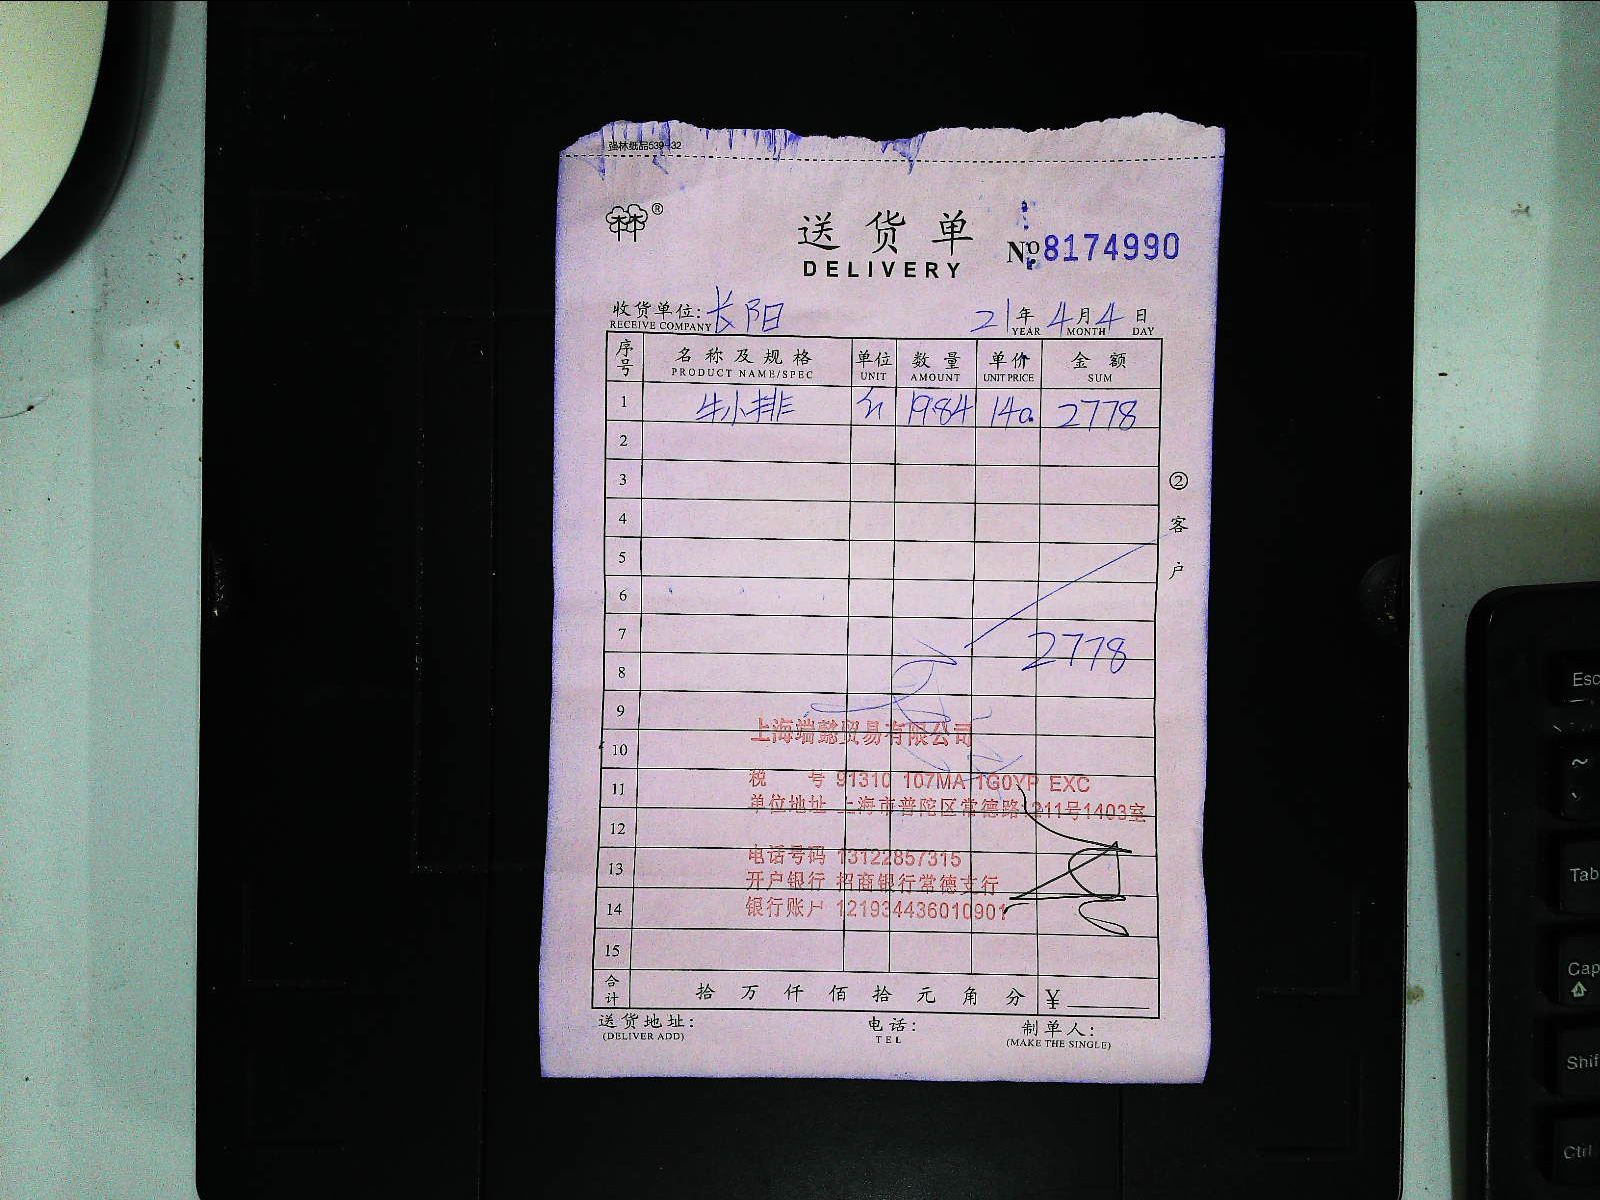 强林纸品539-32
送货单
DELIVERY
№ 8174990
收货单位: 长阳 21年 4月 4日
RECEIVE COMPANY YEAR MONTH DAY
序号 名称及规格 单位 数量 单价 金额
PRODUCT NAME/SPEC UNIT AMOUNT UNIT PRICE SUM
1 牛小排 19.84 140 2778
2
3
4
5
6
7 2778
8
9
上海端懿贸易有限公司
10
11 税号 91310 107MA 1G0YP EXC
单位地址 上海市普陀区常德路1211号1403室
12
电话号码 13122857315
13 开户银行 招商银行常德支行
14 银行账户 121934436010901
15
合计 拾 万 仟 佰 拾 元 角 分 ¥
送货地址: 电话: 制单人:
(DELIVER ADD) TEL (MAKE THE SINGLE)
②客户
Esc
~
Tab
Cap
Shif
Ctrl